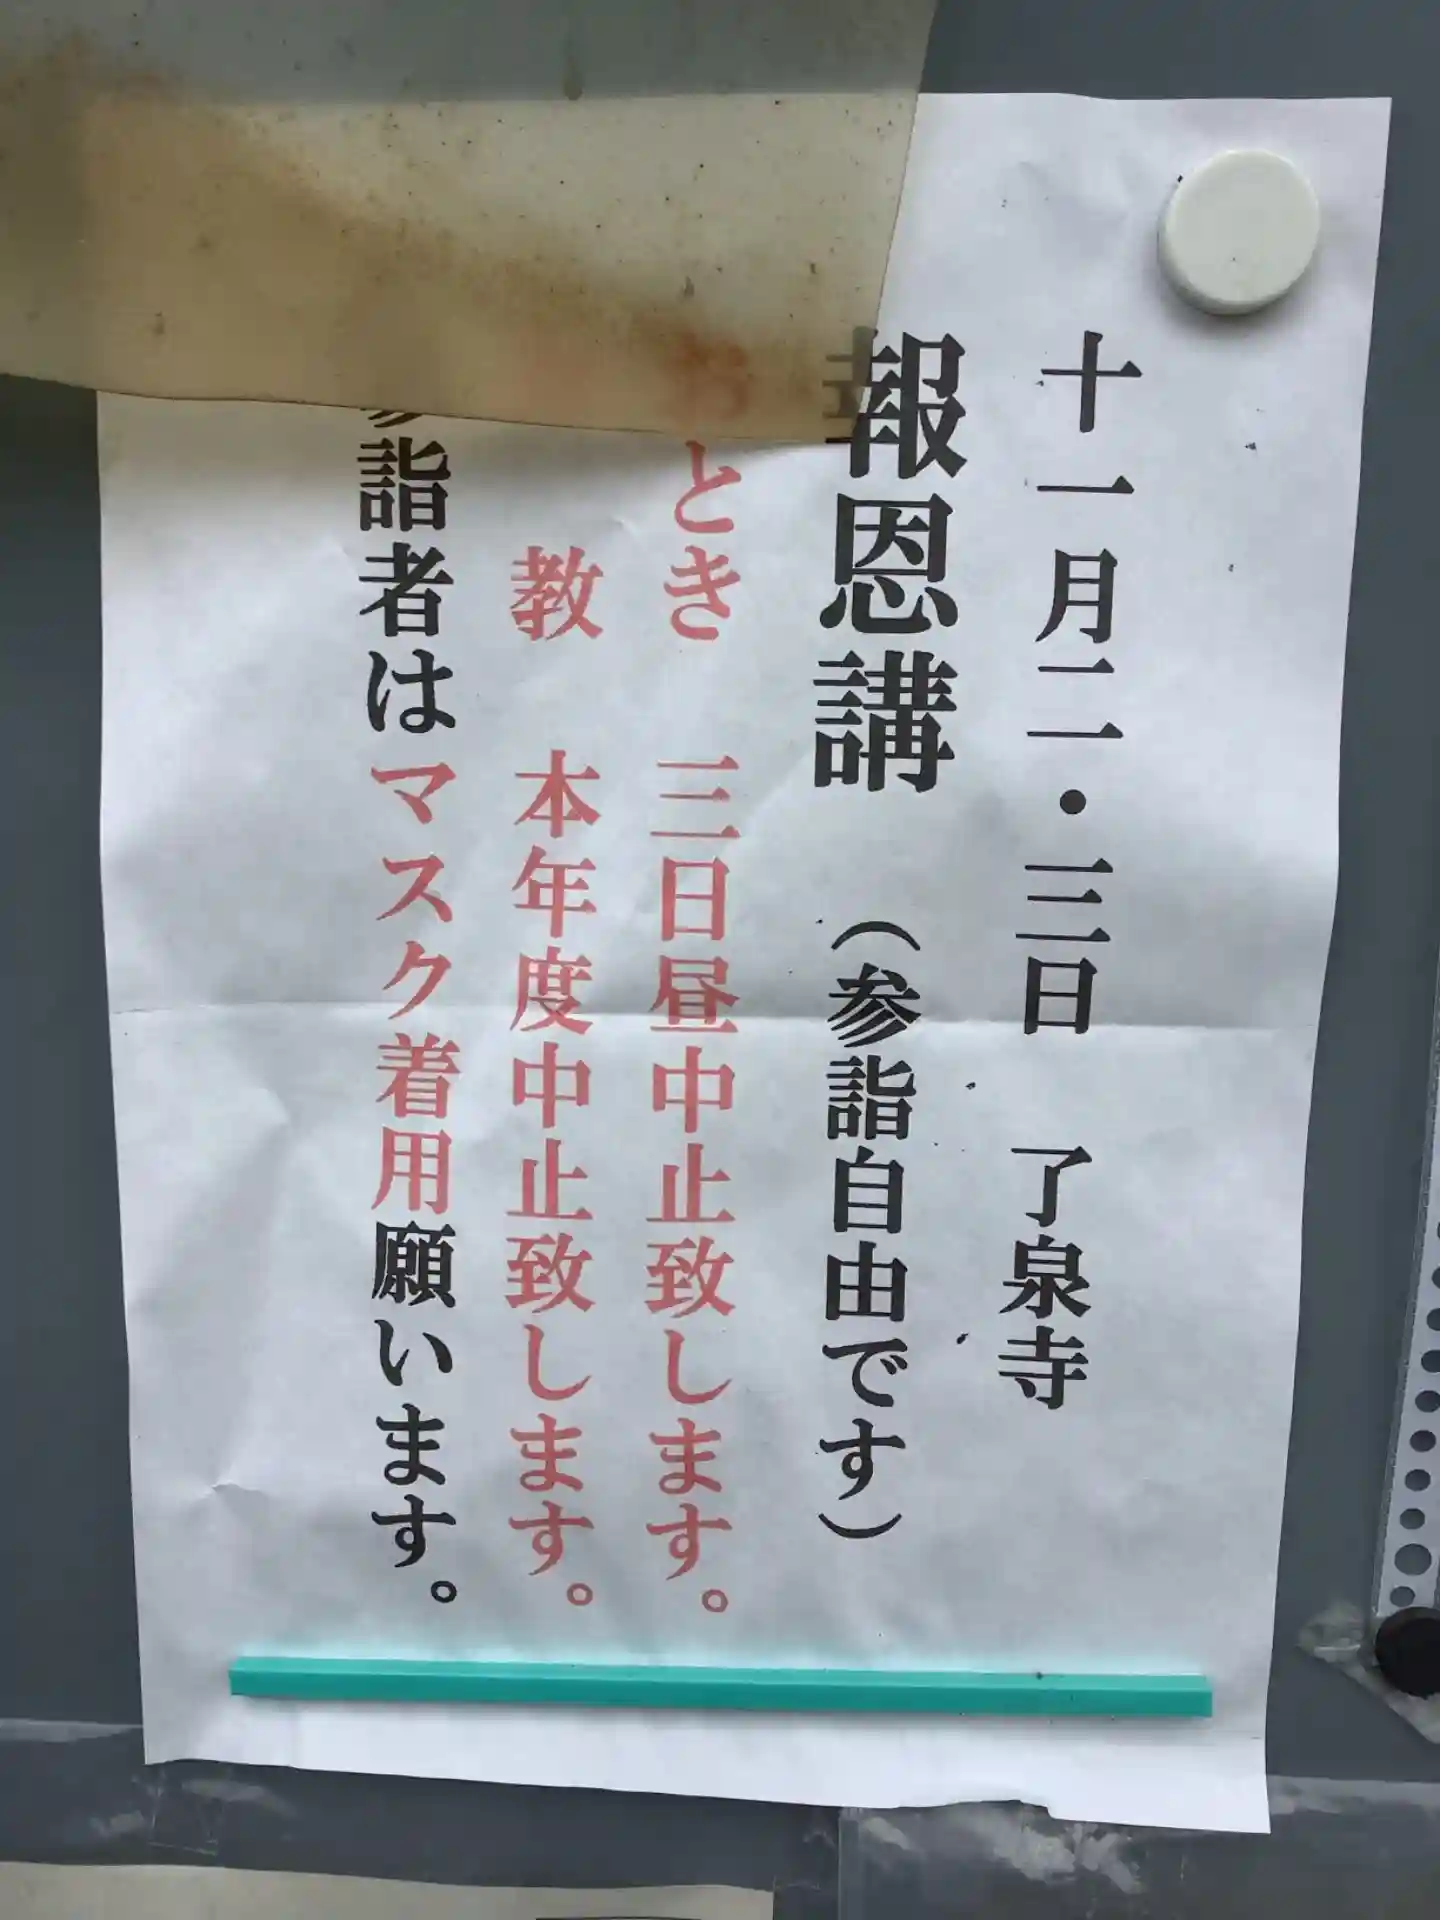 十一月二・三日 了泉寺
報恩講 (参詣自由です)
とき 三日昼中止致します。
教 本年度中止致します。
参詣者はマスク着用願います。